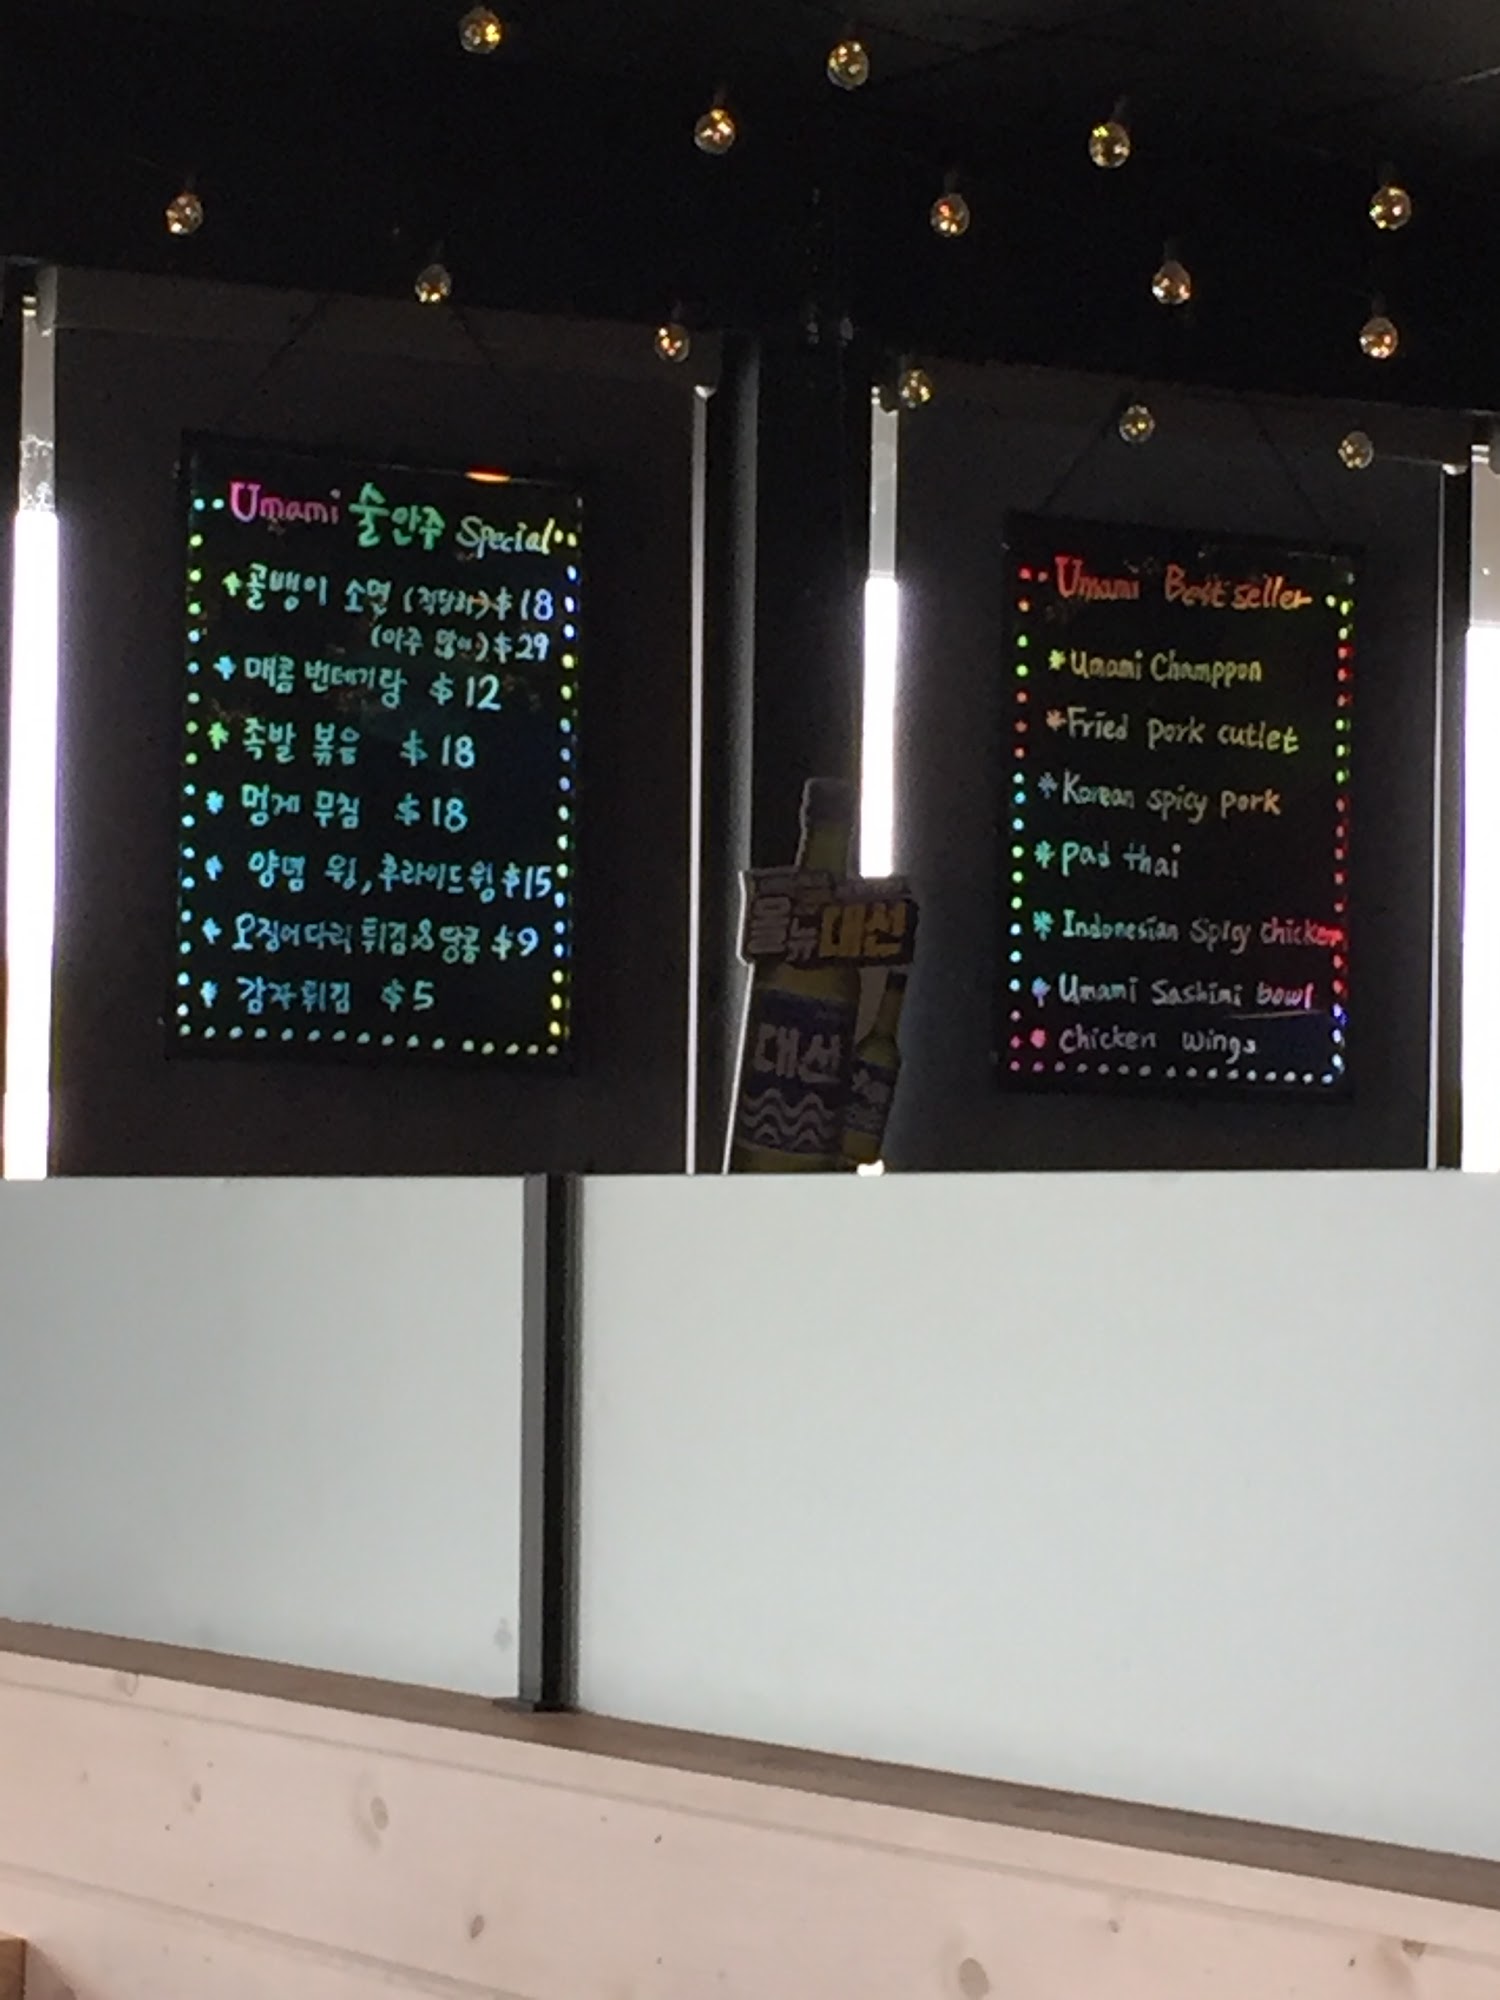 Umami 술안주 Special
골뱅이 소면 (적당히) $18
(아주 많이) $29
매콤 번데기탕 $12
족발 볶음 $18
멍게 무침 $18
양념 윙, 후라이드 윙 $15
오징어다리 튀김 & 땅콩 $9
감자튀김 $5
올뉴대선
대선
Umami Best seller
*Umami Champpon
*Fried pork cutlet
*Korean spicy pork
*pad thai
*Indonesian Spicy chicken
*Umami Sashimi bowl
chicken wings